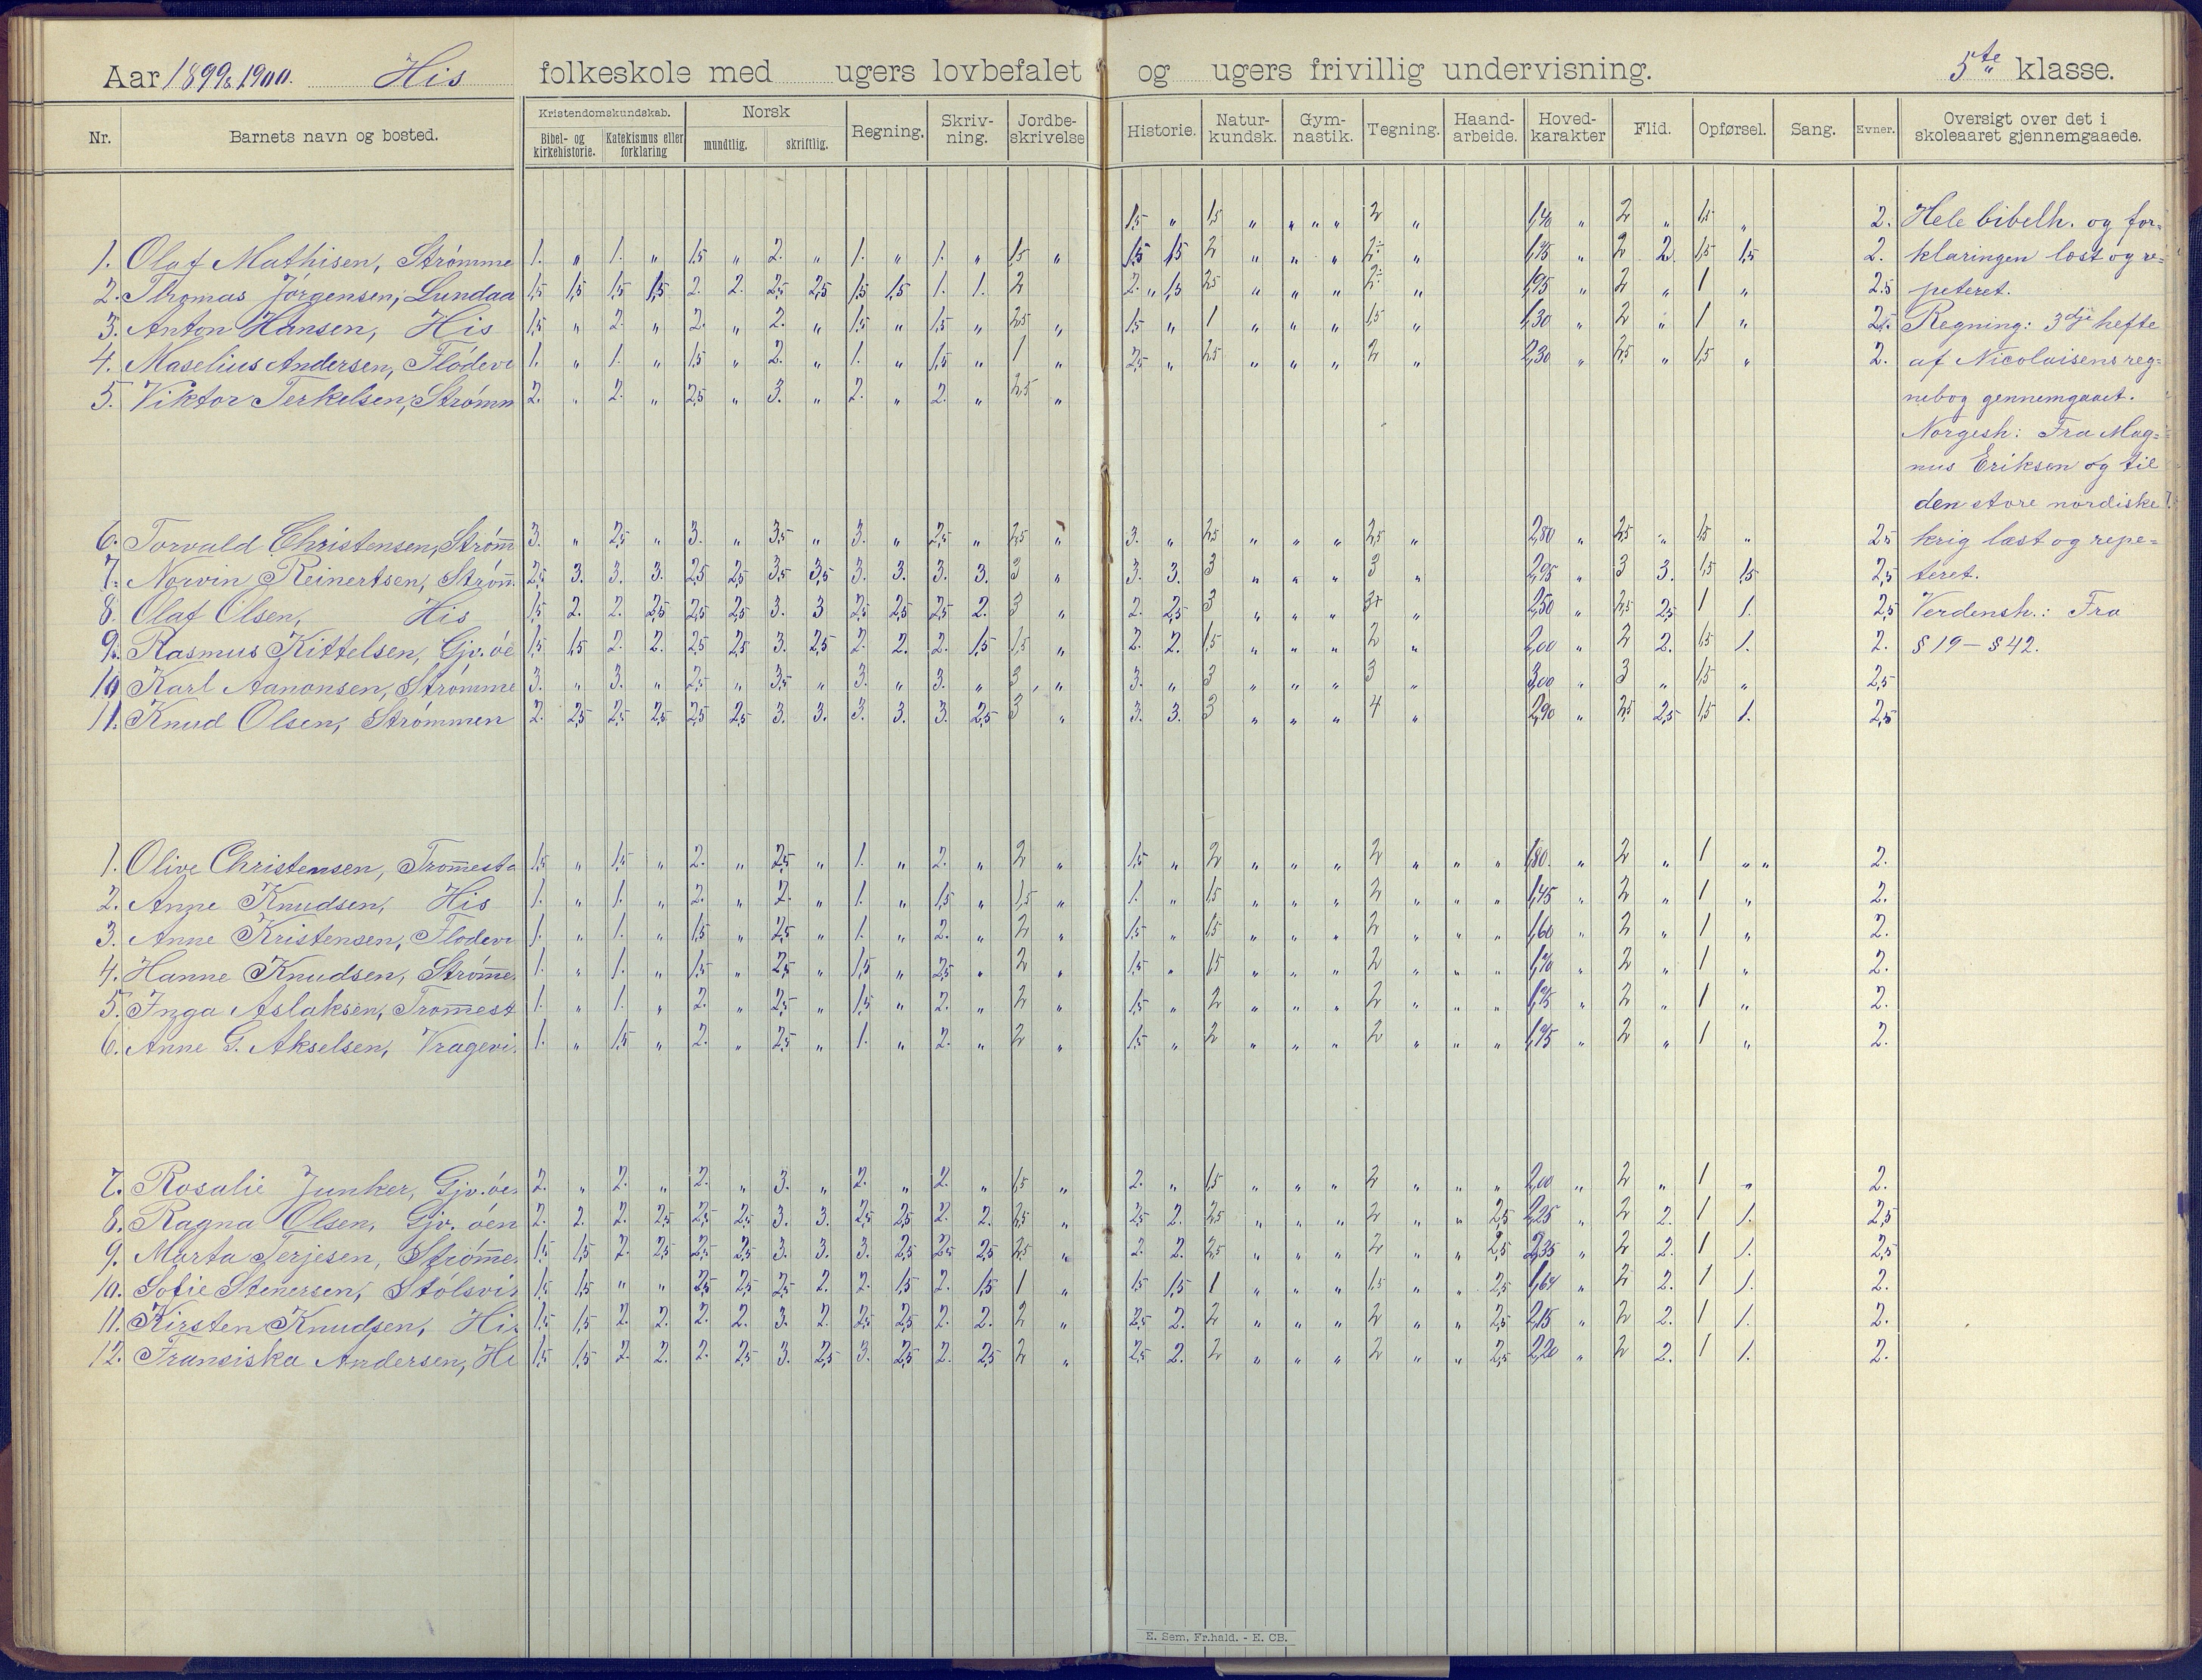 Aar 1899 & 1900. His folkeskole med ugers lovbefalet og ugers frivillig undervisning. 5te klasse.
Nr. Barnets navn og bosted. Kristendomskundskab. Bibel- og kirkehistorie. Katekismus eller forklaring Norsk mundtlig. skriftlig. Regning. Skriv-ning. Jordbe-skrivelse Historie. Natur-kundsk. Gym-nastik. Tegning. Haand-arbeide. Hoved-karakter Flid. Opførsel. Sang. Evner. Oversigt over det i skoleaaret gjennemgaaede.
1,5 " 1,5 " " " " 2 " 1,40 " 2 " 1,5 " 2. Hele bibelh. og for-
1. Olaf Mathisen, Strømme 1. " 1. " 1,5 " 2. " 1. " 1. " 1,5 " 1,5 1,5 2 " " " 2- " 1,75 " 2 2. 1,5 1,5 2. klaringen læst og re-
2. Thomas Jörgensen, Lundaa 1,5 1,5 1,5 1,5 2. 2. 2,5 2,5 1,5 1,5 1. 1. 2 2. " 1,5 2,5 " " " 2- " 1,95 " 2 " 1 " 2.5 peteret.
3. Anton Hansen, His 1,5 " 2. " 2. " 2. " 1,5 " 1,5 " 2,5 " 1,5 " 1 " " " 1,5 " 1,30 " 2 " 1 " 2,5 Regning: 3dje hefte
4. Maselius Andersen, Flödevi 1. " 1. " 1,5 " 2. " 1. " 1,5 " 1 " 2,5 " 2,5 " " " 2 " 2,30 " 2,5 " 1,5 " 2. af Nicolaisens reg-
5. Viktor Terkelsen, Strømm 2. " 2. " 2,5 " 3. " 2. " 2. " 2,5 " nebog gennemgaaet.
Norgesh: Fra Mag-
nus Eriksen og til
den store nordiske
6. Torvald Christensen, Strøm̅ 3. " 2,5 " 3. " 3,5 " 3. " 2,5 " 2,5 " 3. " 2,5 " " " 2,5 " 2,80 " 2,5 " 1,5 " 2,5 krig læst og repe-
7. Norvin Reinertsen, Strøm̅ 2,5 3. 3. 3. 2,5 2,5 3,5 3,5 3. 3. 3. 3. 3 " 3. 3. 3 " " " 3 " 2,95 " 3 3. 1,5 1,5 2,5 teret.
8. Olaf Olsen, His 1,5 2. 2. 2,5 2,5 2,5 3. 3 2,5 2,5 2,5 2. 3 " 2. 2,5 3 " " " 3+ " 2,50 " 2,5 2,5 1 1. 2,5 Verdensh.: Fra
9. Rasmus Kittelsen, Gjv. öe 1,5 1,5 2. 2. 2,5 2,5 3. 2,5 2. 2. 2. 1,5 1,5 " 2. 2. 1,5 " " " 2 " 2,00 " 2 2. 1,5 1. 2. § 19 – § 42.
10 Karl Aanonsen, Strømme 3. " 3. " 2,5 " 3,5 " 3. " 3. " 3 " 3. " 3 " " " 3 " 3,00 " 3 " 1,5 " 2,5
11. Knud Olsen, Strömmen 2. 2,5 2,5 2,5 2,5 2,5 3. 3. 3. 3. 3. 2,5 3 " 3. 3. 3 " " " 4 " 2,90 " 2,5 2,5 1,5 1. 2,5
1. Olive Christensen, Trom̅esta 1,5 " 1,5 " 2. " 2,5 " 1. " 2. " 2 " 1,5 " 2 " " " 2 " " " 1,80 " 2 " 1 " " 2.
2. Anne Knudsen, His 1. " 1. " 2. " 2. " 1. " 1,5 " 1,5 " 1. " 1,5 " " " 2 " " " 1,45 " 2 " 1 " 2.
3. Anne Kristensen, Flodevi 1. " 1. " 1,5 " 2,5 " 1. " 2. " 2 " 1,5 " 1,5 " " " 2 " " " 1,60 " 2 " 1 " 2.
4. Hanne Knudsen, Strøm̅e. 1. " 1. " 1,5 " 2,5 " 1,5 " 2,5 " 2 " 1,5 " 1,5 " " " 2 " " " 1,70 " 2 " 1 " 2.
5. Inga Aslaksen, Trom̅est 1. " 1. " 2. " 2,5 " 1,5 " 2. " 2 " 1,5 " 2 " " " 2 " " " 1,75 " 2 " 1 " 2.
6. Anne G. Akselsen, Vragevi. 1. " 1,5 " 2. " 2,5 " 1. " 2. " 2 " 1,5 " 2 " " " 2 " " " 1,75 " 2 " 1 " 2.
7. Rosalie Junker, Gjv.öe. 2. " 2. " 2. " 3. " 2. " 2. " 1,5 " 2. " 1,5 " " " 2 " " " 2,00 " 2 " 1 " 2.
8. Ragna Olsen, Gjv. öen 2. 2. 2. 2,5 2,5 2,5 3. 3. 2,5 2,5 2. 2. 2,5 " 2,5 2. 2,5 " " " 2 " " 2,5 2,25 " 2 2. 1 1. 2,5
9. Marta Terjesen, Strøm̅e. 1,5 1,5 2. 2,5 2,5 2,5 3. 3. 3. 2,5 2,5 2,5 2,5 " 2. 2. 2,5 " " " 2 " " 2,5 2,35 " 2 2. 1 1. 2,5
10. Sofie Stenersen, Stölsvi 1,5 1,5 " " 2,5 2,5 2,5 2. 2. 1,5 2. 1,5 1 " 1,5 1,5 1 " " " 1,5 " " 2,5 1,64 " 2 2. 1 1. 2.
11. Kirsten Knudsen, His 1,5 1,5 2. 2. 2. 2. 3. 2. 2,5 2,5 2. 2. 2 " 2,5 2. 2 " " " 2 " " 2,5 2,15 " 2 2. 1 1. 2.
12. Fransiska Andersen, Hi 1,5 1,5 2. 2. 2. 2,5 3. 2,5 3. 2,5 2. 2,5 2 " 2,5 2. 2 " " " 2 " " 2,5 2,20 " 2 2. 1 1. 2.
E. Sem, Fr.hald. - E. CB.